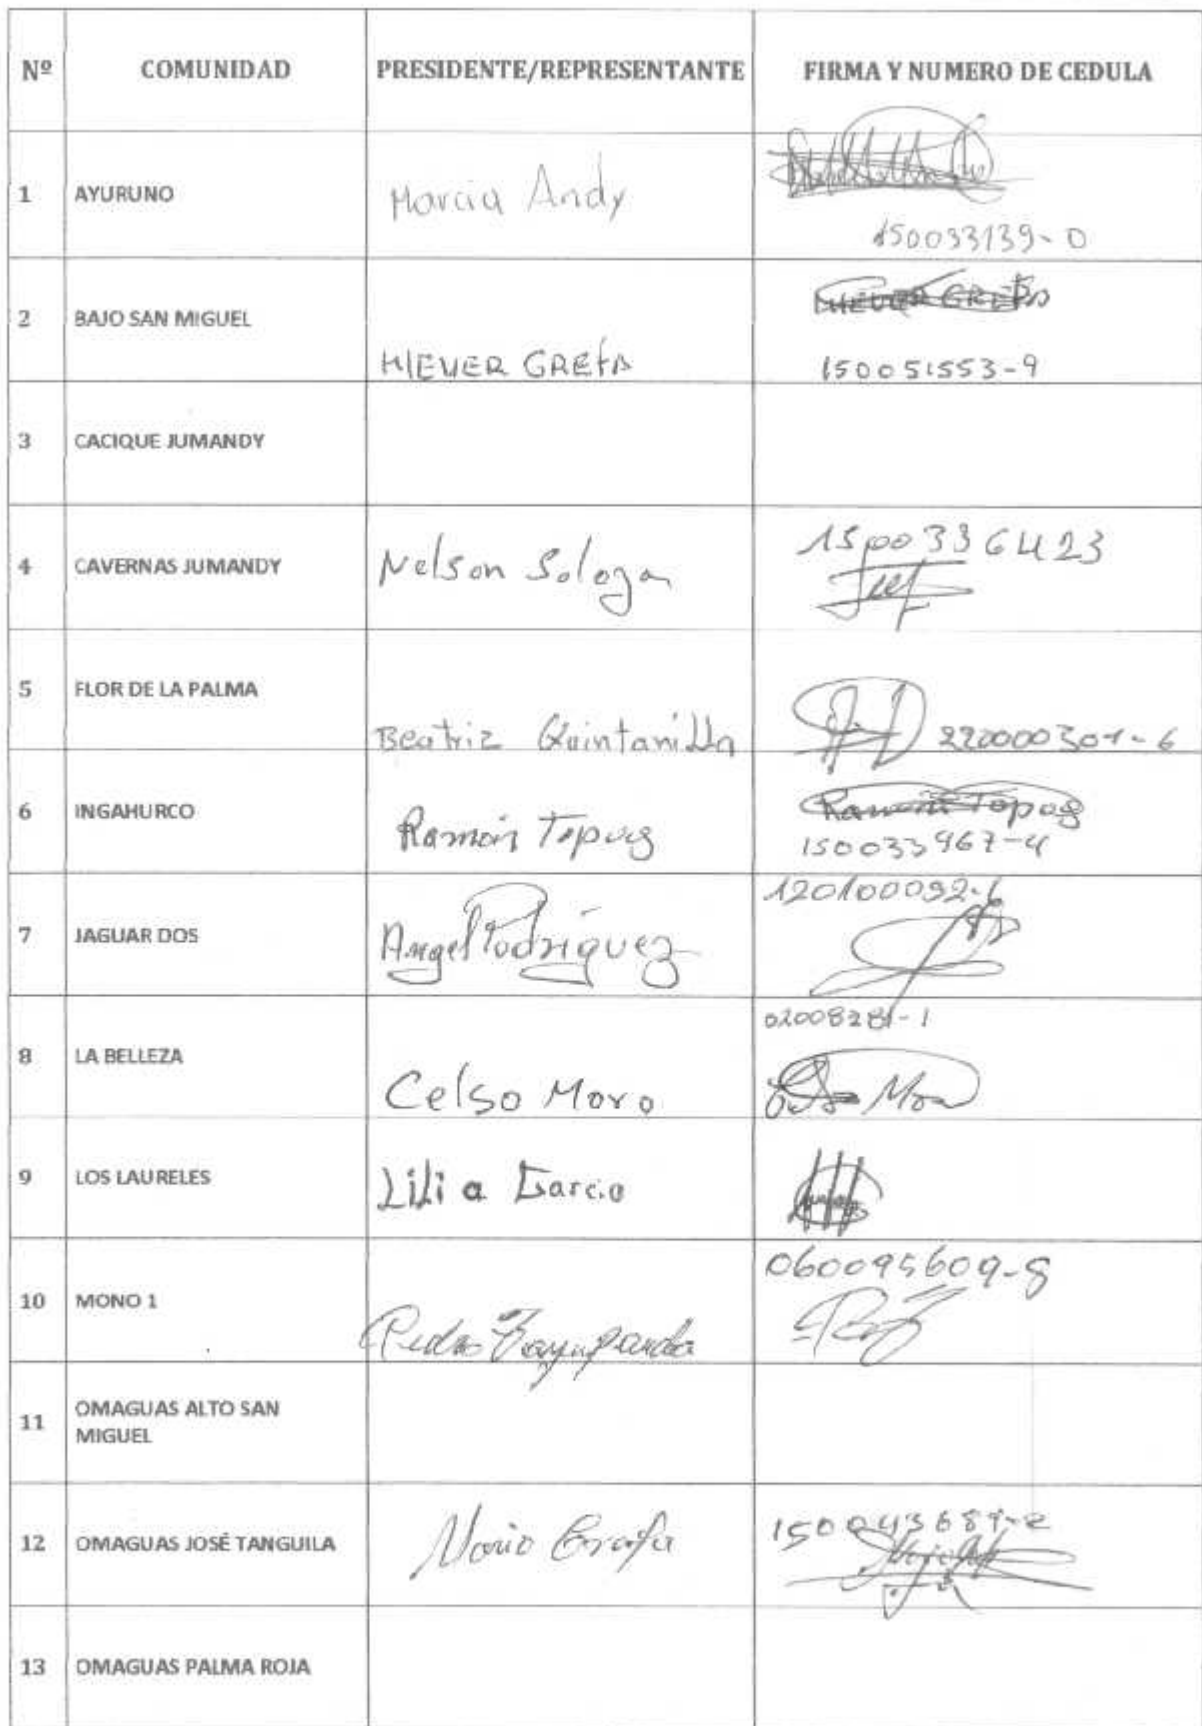 Nº COMUNIDAD PRESIDENTE/REPRESENTANTE FIRMA Y NUMERO DE CEDULA
1 AYURUNO Marcia Andy
150033139-0
2 BAJO SAN MIGUEL HIEVER GREFA
150051553-9
3 CACIQUE JUMANDY
4 CAVERNAS JUMANDY Nelson 1500336423
5 FLOR DE LA PALMA Beatriz Quintanilla 220000301-6
6 INGAHURCO Ramón Ramón
150033967-4
7 JAGUAR DOS Angel Rodriguez 120100092-6
8 LA BELLEZA Celso Moro 02008281-1
9 LOS LAURELES Lilia Garcia
10 MONO 1 Pedro 060095609-8
11 OMAGUAS ALTO SAN
MIGUEL
12 OMAGUAS JOSÉ TANGUILA Mario Grefa
13 OMAGUAS PALMA ROJA